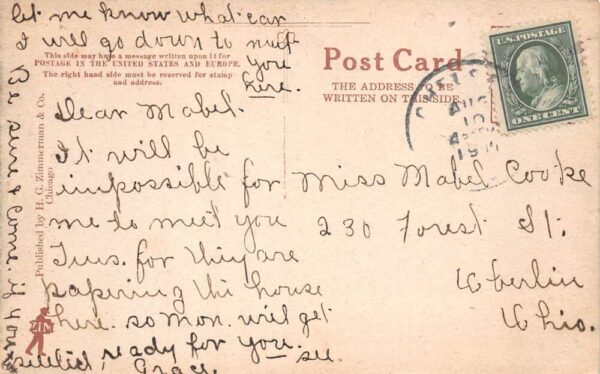 let me know what car
I will go down to meet
you
here.
This side may have a message written upon it for
POSTAGE IN THE UNITED STATES AND EUROPE.
The right hand side must be reserved for stamp
and address.
Dear Mabel.
It will be
impossible for
me to meet you
Tues. for they are
papering the house
here. so Mon. will get
ready for you. see
Grace.
Be sure & come. if your
Published by H. G. Zimmerman & Co.
Chicago
ZIM
Post Card
THE ADDRESS TO BE
WRITTEN ON THIS SIDE.
U.S. POSTAGE
ONE CENT
AUG
10
Miss Mabel Cooke
230 Forest St.
Oberlin
Ohio.